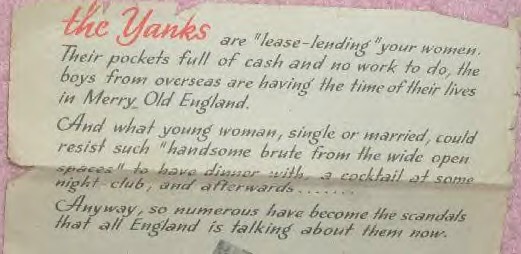 the Yanks are "lease-lending" your women.
Their pockets full of cash and no work to do, the
boys from overseas are having the time of their lives
in Merry Old England.
And what young woman, single or married, could
resist such "handsome brute from the wide open
spaces" to have dinner with, a cocktail at some
night-club, and afterwards.......
Anyway, so numerous have become the scandals
that all England is talking about them now.